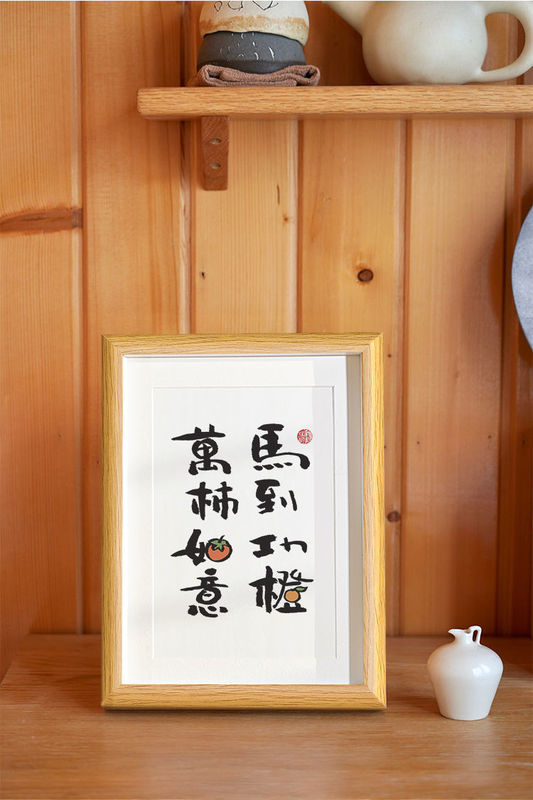 馬到功橙
萬柿如意